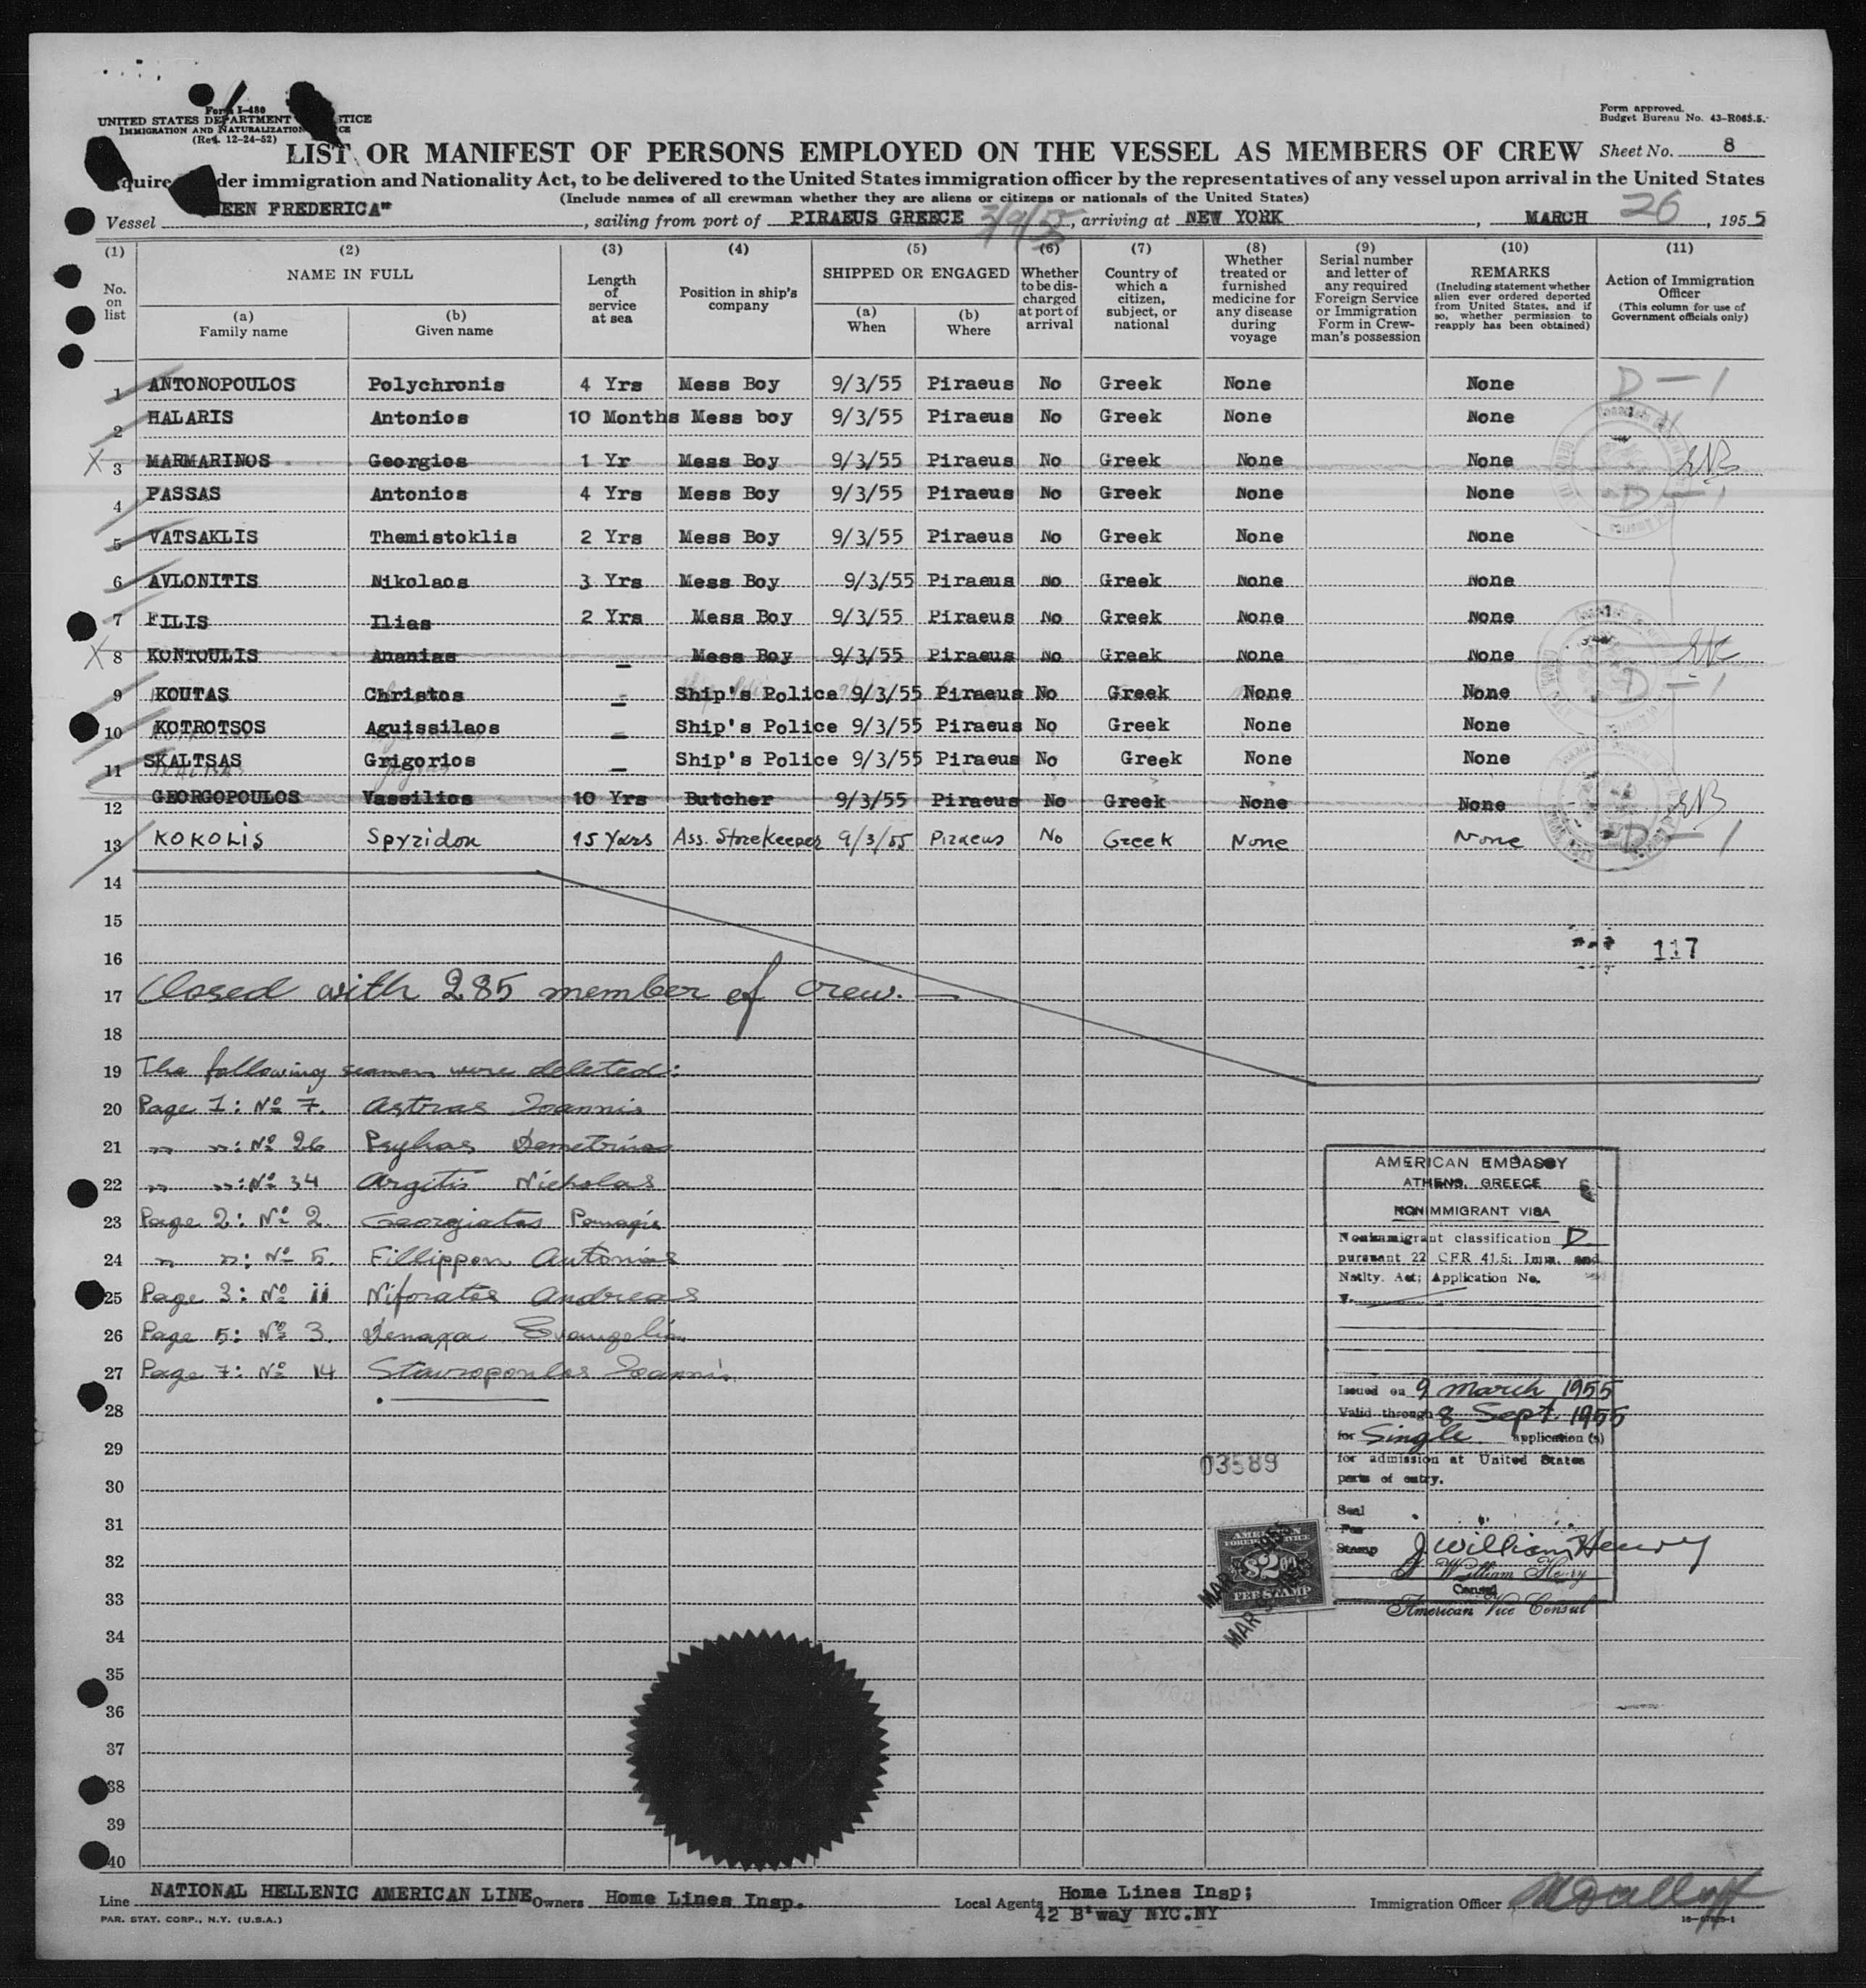 Form I-480
UNITED STATES DEPARTMENT
IMMIGRATION AND NATURALIZATION
(Rev. 12-24-52)
Form approved.
Budget Bureau No. 43-R065.5.
LIST OR MANIFEST OF PERSONS EMPLOYED ON THE VESSEL AS MEMBERS OF CREW
Sheet No. 8
der immigration and Nationality Act, to be delivered to the United States immigration officer by the representatives of any vessel upon arrival in the United States
(Include names of all crewman whether they are aliens or citizens or nationals of the United States)
Vessel EEN FREDERICA", sailing from port of PIRAEUS GREECE 3/9/55, arriving at NEW YORK, MARCH 26, 1955
(1) (2) (3) (4) (5) (6) (7) (8) (9) (10) (11)
No. on list
NAME IN FULL
(a) Family name
(b) Given name
Length of service at sea
Position in ship's company
SHIPPED OR ENGAGED
(a) When
(b) Where
Whether to be discharged at port of arrival
Country of which a citizen, subject, or national
Whether treated or furnished medicine for any disease during voyage
Serial number and letter of any required Foreign Service or Immigration Form in Crewman's possession
REMARKS
(Including statement whether alien ever ordered deported from United States, and if so, whether permission to reapply has been obtained)
Action of Immigration Officer
(This column for use of Government officials only)
1 ANTONOPOULOS Polychronis 4 Yrs Mess Boy 9/3/55 Piraeus No Greek None None D-1
2 HALARIS Antonios 10 Months Mess boy 9/3/55 Piraeus No Greek None None
X 3 MARMARINOS Georgios 1 Yr Mess Boy 9/3/55 Piraeus No Greek None None
4 PASSAS Antonios 4 Yrs Mess Boy 9/3/55 Piraeus No Greek None None D-1
5 VATSAKLIS Themistoklis 2 Yrs Mess Boy 9/3/55 Piraeus No Greek None None
6 AVLONITIS Nikolaos 3 Yrs Mess Boy 9/3/55 Piraeus No Greek None None
7 FILIS Ilias 2 Yrs Mess Boy 9/3/55 Piraeus No Greek None None
X 8 KONTOULIS Ananias – Mess Boy 9/3/55 Piraeus No Greek None None
9 KOUTAS Christos – Ship's Police 9/3/55 Piraeus No Greek None None D-1
10 KOTROTSOS Aguissilaos – Ship's Police 9/3/55 Piraeus No Greek None None
11 SKALTSAS Grigorios – Ship's Police 9/3/55 Piraeus No Greek None None
12 GEORGOPOULOS Vassilios 10 Yrs Butcher 9/3/55 Piraeus No Greek None None
13 KOKOLIS Spyridon 15 Years Ass. Storekeeper 9/3/55 Piraeus No Greek None None D-1
14
15
16 117
17 Closed with 285 member of crew. —
18
19 The following seamen were deleted:
20 Page 1: No 7. Astras Ioannis
21 " ": No 26 Psyhas Demetrios
22 " ": No 34 Argitis Nicholas
23 Page 2: No 2. Georgiatos Panagis
24 " ": No 5. Fillippou Antonios
25 Page 3: No 11 Niforatos Andreas
26 Page 5: No 3. Evangelia
27 Page 7: No 14 Stavropoulos Ioannis
28
29
30
31
32
33
34
35
36
37
38
39
40
AMERICAN EMBASSY
ATHENS, GREECE
NONIMMIGRANT VISA
Nonimmigrant classification D
pursuant 22 CFR 41.5; Imm. and
Natlty. Act; Application No.
V.
Issued on 9 March 1955
Valid through 8 Sept. 1955
for Single application (s)
for admission at United States
ports of entry.
03589
Seal
Fee
Stamp
J. William Henry
J. William Henry
Consul
American Vice Consul
AMERICAN
FOREIGN SERVICE
$2.00
FEE STAMP
Line NATIONAL HELLENIC AMERICAN LINE Owners Home Lines Insp. Local Agents Home Lines Insp; Immigration Officer
42 B'way NYC.NY
PAR. STAT. CORP., N.Y. (U.S.A.)